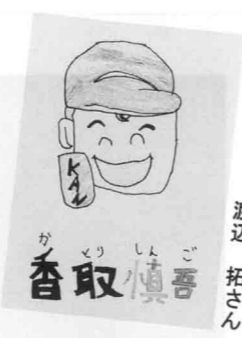 KAN
かとりしんご
香取慎吾
渡辺 拓さん